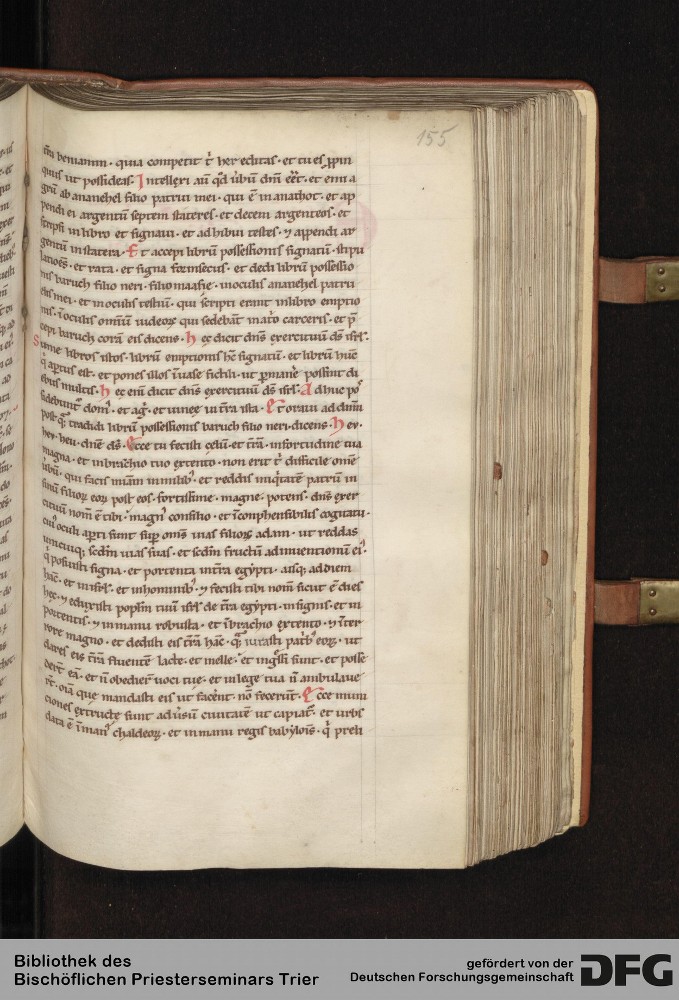 155
t̄ra beniamin · quia competit t̄ hereditas · et tu es ꝓpin
quus ut possideas · Intellexi aū qd̄ úbūm dn̄i eēt · et emi a
grū ab ananehel filio patrui mei · qui ē in anathot · et ap
pendi ei argentū septem stateres · et decem argenteos · et
scripsi in libro et signaui · et adhibui testes · ⁊ appendi ar
gentū in statera · Et accepi librū possessionis signatū · stipu
lationēs · et rata · et signa forinsecus · et dedi librū possessio
nis baruch filio neri · filio maasie · in oculis ananehel patru
elis mei · et in oculis testiū · qui scripti erant in libro emptio
nis · ī oculis omniū iudeoꝝ qui sedebāt in atō carceris · et p̄
cepi baruch corā eis dicens · hec dicit dn̄s exercituū ds̄ isrl̄ ·
Sume libros istos · librū emptionis hc̄ signatū · et librū hūc
q̄ aꝑtus est · et pones illos ī uase fictili · ut ꝑmanē possint di
ebus multis · hec enī dicit dn̄s exercituū ds̄ isrl̄ · Adhuc pos
sidebunt̄ dom̄ · et agⁱ · et uinee in t̄ra ista · Et oraui ad dn̄m
postq̄ꝫ tradidi librū possessionis baruch filio neri dicens · Hev ·
hev · heu · dn̄e ds̄ · Ecce tu fecisti celū · et t̄rā · in fortitudine tua
magna · et in brachio tuo extento · non erit t̄ difficile om̄e
úbū · qui facis miām in milibꝰ · et reddis iniq̄tatē patrū in
sinū filioꝝ eoꝝ post eos · fortissime · magne · potens · dn̄s exer
cituū nom̄ ē tibi · magnꝰ consilio · et īconp̄hensibilis cogitatu ·
cuiꝰ oculi aꝑti sunt suꝑ om̄s uias filioꝝ adam · ut reddas
unicuiqꝫ scdm̄ uias suas · et scdm̄ fructū adinuentionū eiꝰ ·
q̄ posuisti signa · et portenta in t̄ra egypti · usqꝫ ad diem
hāc · et in isrl̄ · et in hominibꝰ · ⁊ fecisti tibi nom̄ sicut ē dies
hec · ⁊ eduxisti popl̄m tuū isrl̄ de t̄ra egypti · in signis · et in
portentis · ⁊ in manu robusta · et ī brachio extento · ⁊ ī ter
rore magno · et dedisti eis t̄rā hāc · qᷓ iurasti patbꝰ eoꝝ · ut
dares eis t̄rā fluentē lacte · et melle · et ingssi sunt · et posse
der̄t eā · et n̄ obedier̄t uoci tue · et in lege tua n̄ ambulaue
r̄t · oīa que mandasti eis ut facer̄nt · nō fecerūt · Ecce muni
ciones extructe sunt aduersū ciuitatē ut capiat̄ · et urbs
data ē ī manꝰ chaldeoꝝ · et in manu regis babylōis · q̄ preli
Bibliothek des
Bischöflichen Priesterseminars Trier
gefördert von der
Deutschen Forschungsgemeinschaft
DFG